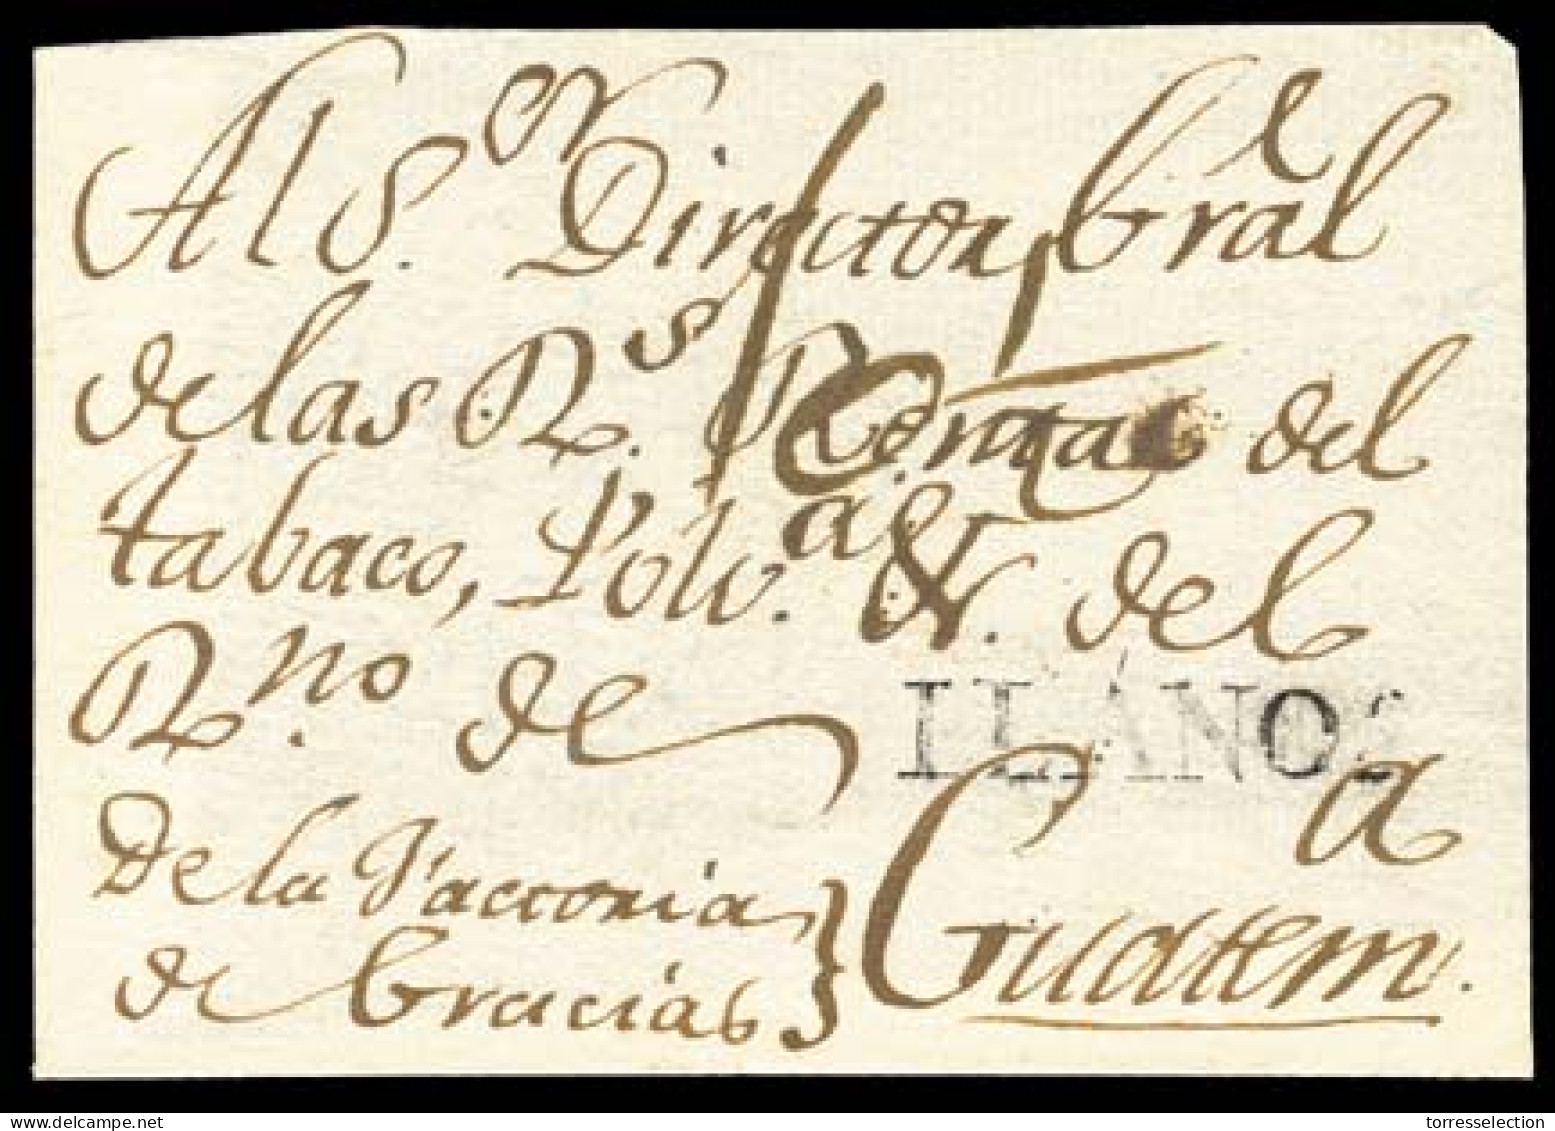 Al S.or Director Gral e
de las R.s Rentas del
tabaco, Polv.a &. del
R.no de
LLANOS
De la Factoria
de Gracias
a
Guatem.a
www.delcampe.net
torresselection